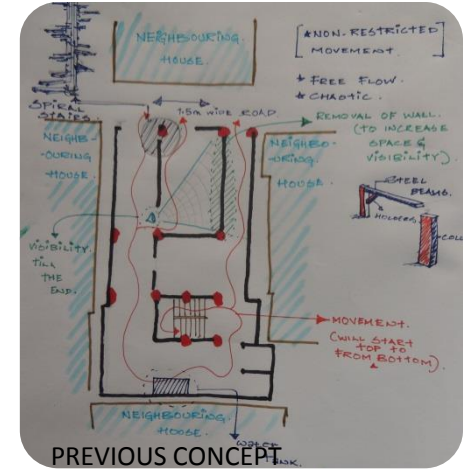 NEIGHBOURING
HOUSE.
[★NON-RESTRICTED
MOVEMENT]
★ FREE FLOW.
★ CHAOTIC.
SPIRAL
STAIRS
1.5m WIDE ROAD
REMOVAL OF WALL.
(TO INCREASE
SPACE &
VISIBILITY).
NEIGHB-
-OURING
HOUSE
NEIGHBO-
-URING.
HOUSE
STEEL
BEAMS.
HOLDERS
VISIBILITY
TILL
THE
END.
MOVEMENT.
(WILL START
TOP TO
FROM BOTTOM).
NEIGHBOURING
HOUSE.
PREVIOUS CONCEPT